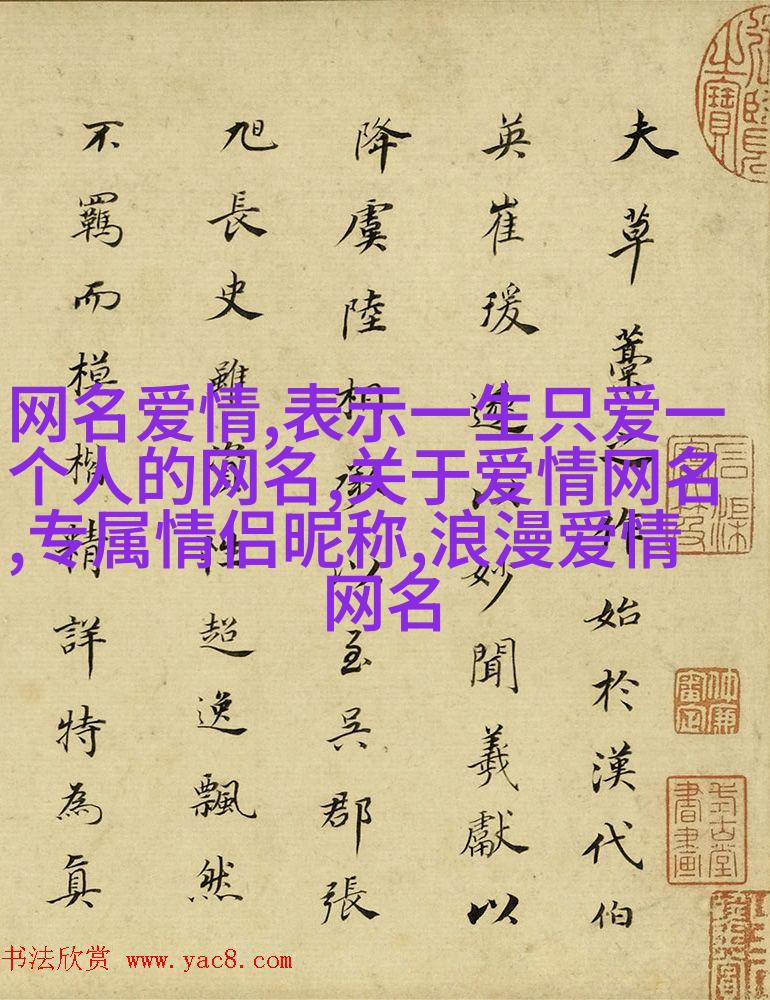 夫草藁之作始於漢代伯
英崔瑗遂以妙聞羲獻以
降虞陸相承以至吳郡張
旭長史雖資性超逸飄然
不羈而模楷精詳特為真
网名爱情,表示一生只爱一
个人的网名,关于爱情网名
,专属情侣昵称,浪漫爱情
网名
书法欣赏 www.yac8.com